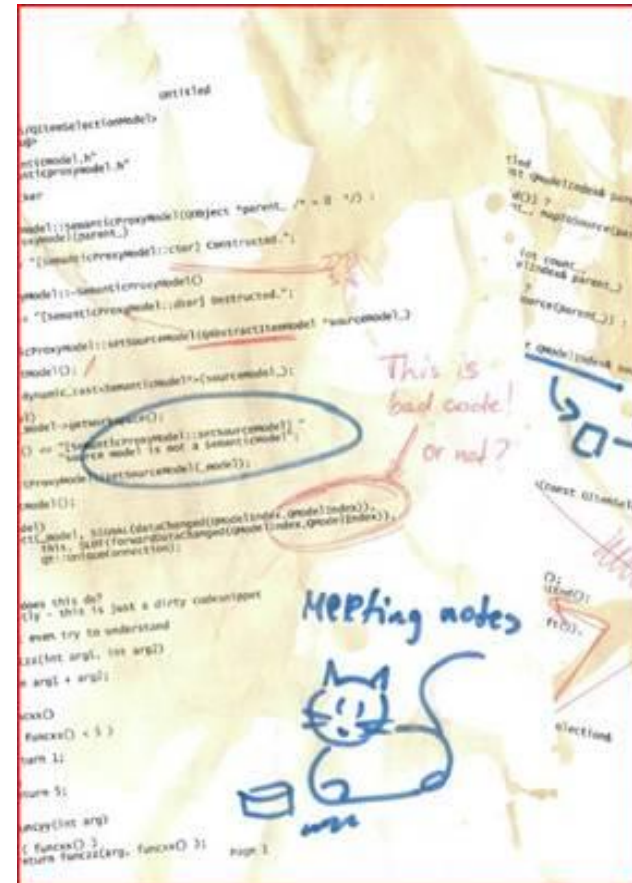 untitled
/QItemSelectionModel>
anticmodel.h"
anticproxymodel.h"
model::SemanticProxyModel(QObject *parent_ /* = 0 */) :
oxymodel(parent_)
"[SemanticProxyModel::ctor] Constructed.";
yModel::~SemanticProxyModel()
"[SemanticProxyModel::dtor] Destructed.";
icProxyModel::setSourceModel(QAbstractItemModel *sourceModel_)
tmodel();
dynamic_cast<SemanticModel*>(sourceModel_);
() << "[SemanticProxyModel::setSourceModel] "
"source model is not a SemanticModel";
cProxyModel::setSourceModel(_model);
model();
del)
ct(_model, SIGNAL(dataChanged(QModelIndex,QModelIndex)),
this, SLOT(forwardDataChanged(QModelIndex,QModelIndex)),
Qt::UniqueConnection);
does this do?
tly - this is just a dirty codesnippet
even try to understand
(int arg1, int arg2)
arg1 + arg2;
ncxx()
funcxx() < 5 )
turn 1;
eturn 5;
uncyy(int arg)
( funcxx() )
eturn funczz(arg, funcxx() );
Page 1
This is
bad code!
or not?
Meeting notes
tled
st QModelIndex& pare
d()) ?
mapToSource(par
int count_
elIndex& parent_)
?
ource(parent_)) :
t QModelIndex&
(const QItemSel
();
ft()),
election&